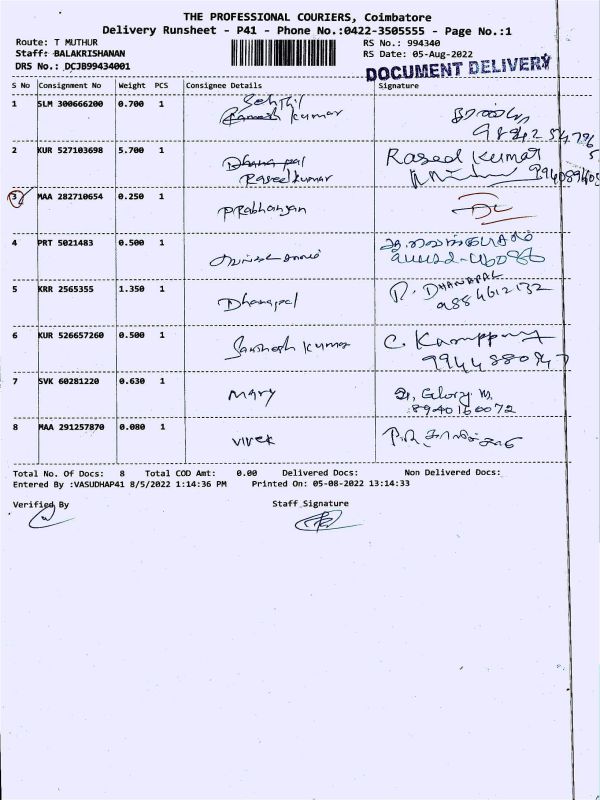 THE PROFESSIONAL COURIERS, Coimbatore
Delivery Runsheet - P41 - Phone No.:0422-3505555 - Page No.:1
Route: T MUTHUR RS No.: 994340
Staff: BALAKRISHANAN RS Date: 05-Aug-2022
DRS No.: DCJB99434001 DOCUMENT DELIVERY
S No Consignment No Weight PCS Consignee Details Signature
1 SLM 300666200 0.700 1 Senthil Kumar
2 KUR 527103698 5.700 1 Dhanapal Raseed Kumar
Raseed kumar
3 MAA 282710654 0.250 1 PRabhanjan
4 PRT 5021483 0.500 1
5 KRR 2565355 1.350 1 Dhanapal R. DHANAPAL
9884612132
6 KUR 526657260 0.500 1 Santhosh kumar C.
7 SVK 60281220 0.630 1 Mary Glory. M,
8940160072
8 MAA 291257870 0.080 1 vivek
Total No. Of Docs: 8 Total COD Amt: 0.00 Delivered Docs: Non Delivered Docs:
Entered By :VASUDHAP41 8/5/2022 1:14:36 PM Printed On: 05-08-2022 13:14:33
Verified By Staff Signature